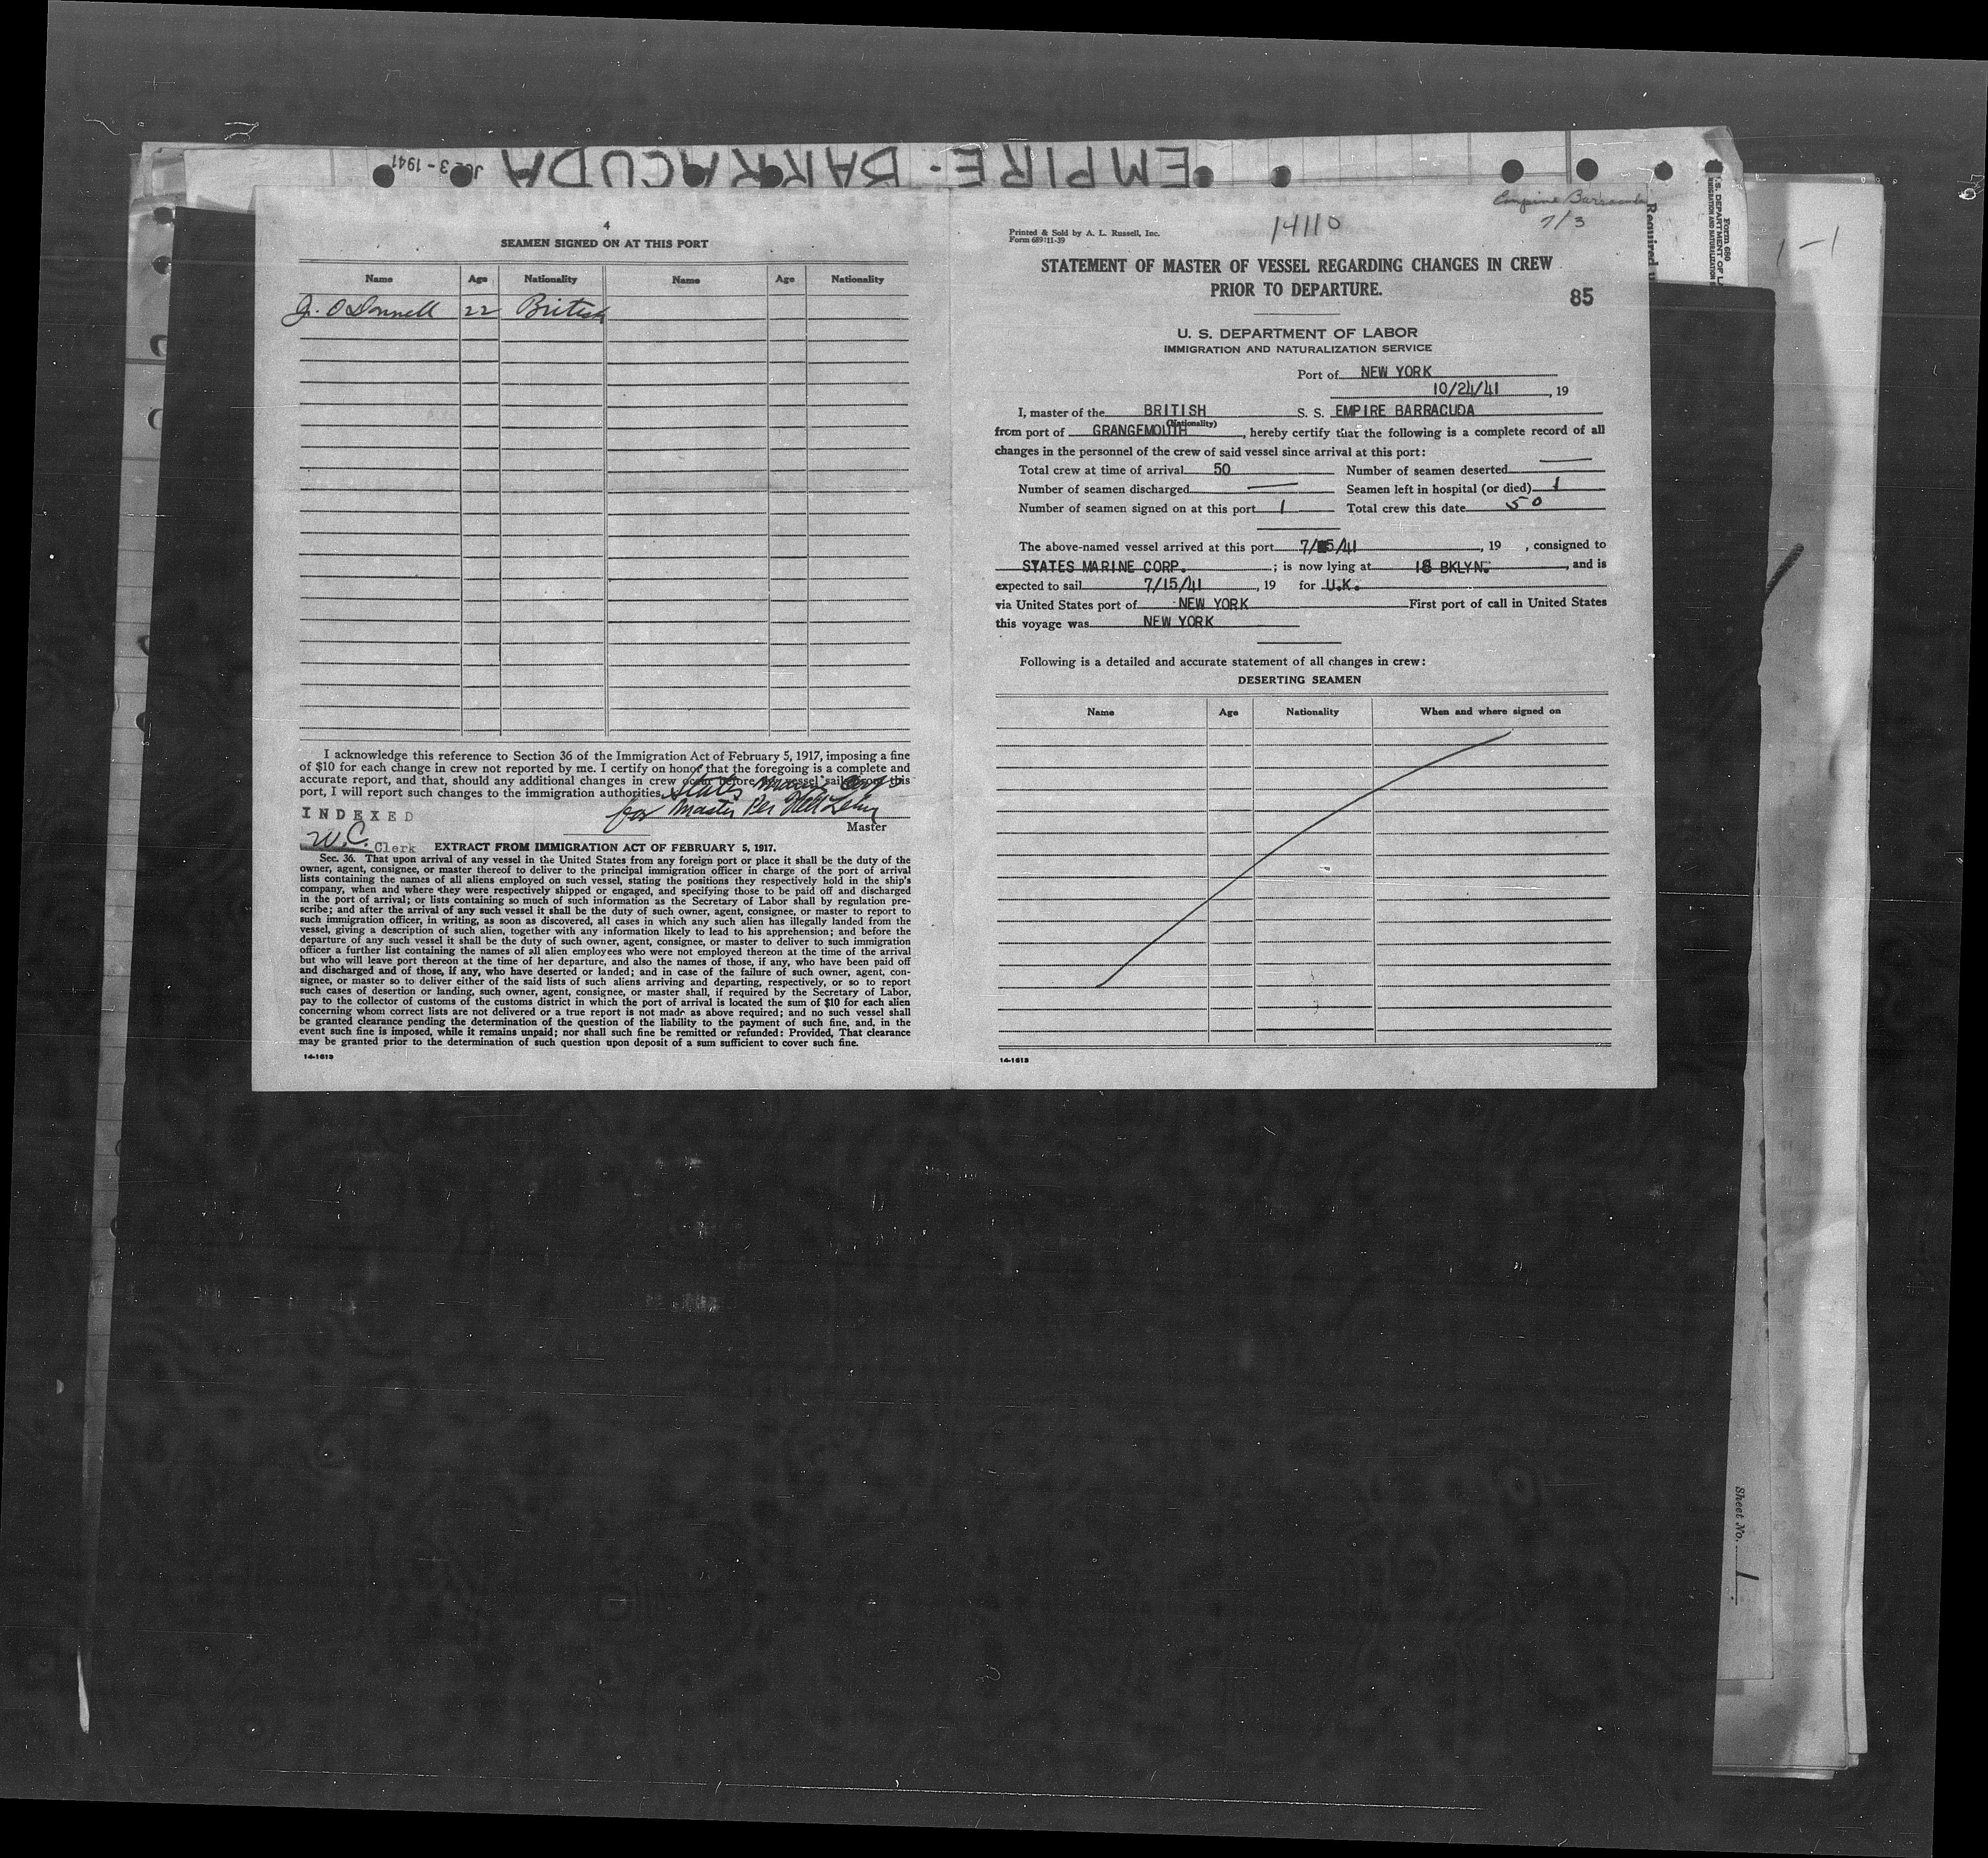 EMPIRE - BARRACUDA
JUL 3 - 1941
4
SEAMEN SIGNED ON AT THIS PORT
Name Age Nationality Name Age Nationality
J. O'Donnell 22 British
I acknowledge this reference to Section 36 of the Immigration Act of February 5, 1917, imposing a fine
of $10 for each change in crew not reported by me. I certify on honor that the foregoing is a complete and
accurate report, and that, should any additional changes in crew occur before my vessel sails from this
port, I will report such changes to the immigration authorities.
States Marine Corp
for Master Per
Master
INDEXED
W.C. Clerk
EXTRACT FROM IMMIGRATION ACT OF FEBRUARY 5, 1917.
Sec. 36. That upon arrival of any vessel in the United States from any foreign port or place it shall be the duty of the
owner, agent, consignee, or master thereof to deliver to the principal immigration officer in charge of the port of arrival
lists containing the names of all aliens employed on such vessel, stating the positions they respectively hold in the ship's
company, when and where they were respectively shipped or engaged, and specifying those to be paid off and discharged
in the port of arrival; or lists containing so much of such information as the Secretary of Labor shall by regulation pre-
scribe; and after the arrival of any such vessel it shall be the duty of such owner, agent, consignee, or master to report to
such immigration officer, in writing, as soon as discovered, all cases in which any such alien has illegally landed from the
vessel, giving a description of such alien, together with any information likely to lead to his apprehension; and before the
departure of any such vessel it shall be the duty of such owner, agent, consignee, or master to deliver to such immigration
officer a further list containing the names of all alien employees who were not employed thereon at the time of the arrival
but who will leave port thereon at the time of her departure, and also the names of those, if any, who have been paid off
and discharged and of those, if any, who have deserted or landed; and in case of the failure of such owner, agent, con-
signee, or master so to deliver either of the said lists of such aliens arriving and departing, respectively, or so to report
such cases of desertion or landing, such owner, agent, consignee, or master shall, if required by the Secretary of Labor,
pay to the collector of customs of the customs district in which the port of arrival is located the sum of $10 for each alien
concerning whom correct lists are not delivered or a true report is not made as above required; and no such vessel shall
be granted clearance pending the determination of the question of the liability to the payment of such fine, and, in the
event such fine is imposed, while it remains unpaid; nor shall such fine be remitted or refunded: Provided, That clearance
may be granted prior to the determination of such question upon deposit of a sum sufficient to cover such fine.
14-1613
Printed & Sold by A. L. Russell, Inc.
Form 689 11-39
14110
Empire Barracuda
7/3
STATEMENT OF MASTER OF VESSEL REGARDING CHANGES IN CREW
PRIOR TO DEPARTURE.
85
U. S. DEPARTMENT OF LABOR
IMMIGRATION AND NATURALIZATION SERVICE
Port of NEW YORK
10/24/41, 19
I, master of the BRITISH S. S. EMPIRE BARRACUDA
(Nationality)
from port of GRANGEMOUTH, hereby certify that the following is a complete record of all
changes in the personnel of the crew of said vessel since arrival at this port:
Total crew at time of arrival 50 Number of seamen deserted —
Number of seamen discharged — Seamen left in hospital (or died) 1
Number of seamen signed on at this port 1 Total crew this date 50
The above-named vessel arrived at this port 7/5/41, 19 , consigned to
STATES MARINE CORP. ; is now lying at 18 BKLYN. , and is
expected to sail 7/15/41 , 19 for U.K.
via United States port of NEW YORK First port of call in United States
this voyage was NEW YORK
Following is a detailed and accurate statement of all changes in crew:
DESERTING SEAMEN
Name Age Nationality When and where signed on
14-1613
Form 680
Required u
1-1
Sheet No. 1